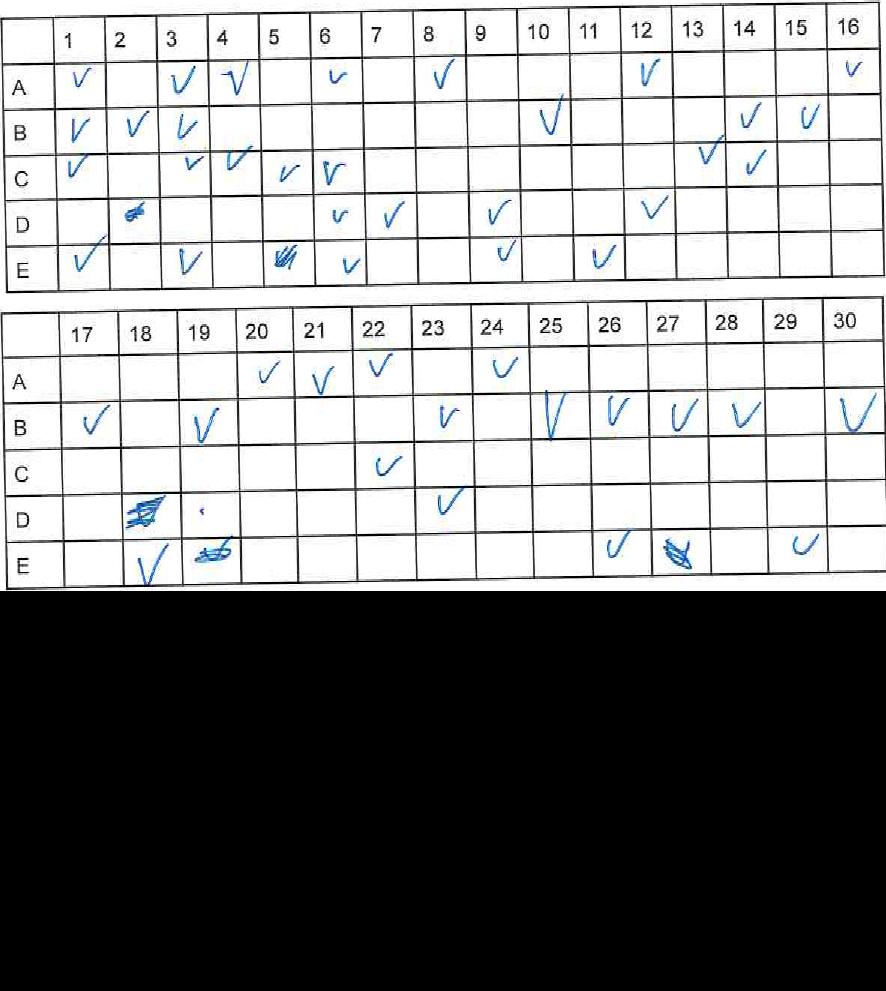 1 2 3 4 5 6 7 8 9 10 11 12 13 14 15 16
A ✓ ✓ ✓ ✓ ✓ ✓ ✓
B ✓ ✓ ✓ ✓ ✓ ✓
C ✓ ✓ ✓ ✓ ✓ ✓ ✓
D ✓ ✓ ✓ ✓
E ✓ ✓ ✓ ✓ ✓
17 18 19 20 21 22 23 24 25 26 27 28 29 30
A ✓ ✓ ✓ ✓
B ✓ ✓ ✓ ✓ ✓ ✓ ✓ ✓
C ✓
D ✓
E ✓ ✓ ✓